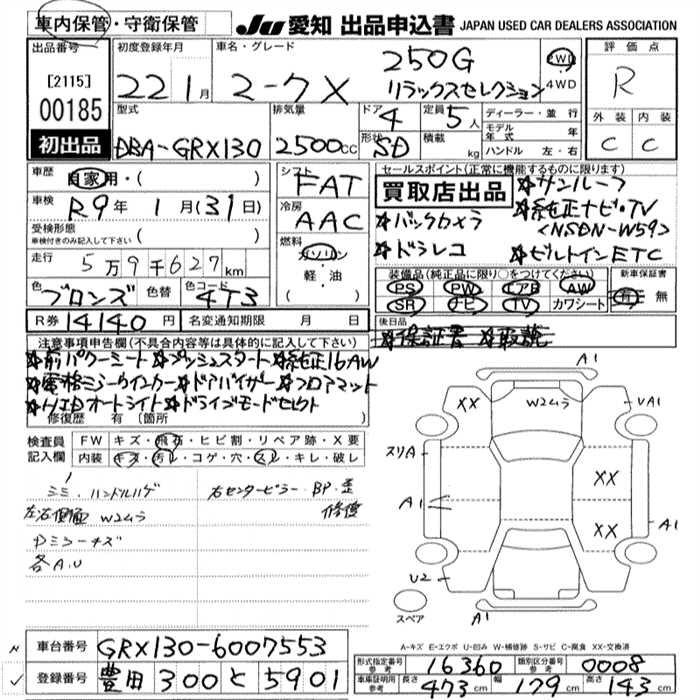 車内保管・守衛保管 JU 愛知 出品申込書 JAPAN USED CAR DEALERS ASSOCIATION
出品番号 初度登録年月 車名・グレード 250G 2WD 評価点
[2115] 22 1月 マークX リラックスセレクション 4WD R
00185 型式 排気量 ドア 4 定員 5人 ディーラー・並行 外装 内装
初出品 DBA-GRX130 2500cc 形状 SD 積載 kg モデル年式 年 C C
ハンドル 左・右
車歴 自家用・( ) シフト FAT セールスポイント(正常に機能するものに限ります)
車検 R9年 1月(31日) 冷房 AAC 買取店出品 ☆サンルーフ
受検形態 車検付きのみ記入して下さい ( ) ☆バックカメラ ☆純正ナビ・TV
燃料 ガソリン <NSDN-W59>
走行 5万9千627km 軽・油 ☆ドラレコ ☆ビルトインETC
色 ブロンズ 色替 色コード 4T3 ( ) 装備品(純正品に限り○をつけてください) 新車保証書
PS PW エアB AW 有・無
SR ナビ TV カワシート
R券 14140円 名変通知期限 月 日 後日品
☆保証書 ☆取説
注意事項申告欄(不具合内容等は具体的に記入して下さい)
☆前パワーシート ☆プッシュスタート ☆純正16AW
☆電格ミラーウインカー ☆ドアバイザー ☆フロアマット
☆HIDオートライト ☆ドライブモードセレクト
修復歴 有 (箇所
検査員記入欄 FW キズ・飛石・ヒビ割・リペア跡・X要
内装 キズ・汚レ・コゲ・穴・スレ・キレ・破レ
ミミ、ハンドルハゲ 右センターピラー BP.歪
左右側面 W2ムラ 修復
ドミラーキズ
各A.U
A1
XX W2ムラ VA1
スリA XX
A1 XX A1
U2
スペア A1
A-キズ E-エクボ U-凹み W-補修跡 S-サビ C-腐食 XX-交換済
車台番号 GRX130-6007553
登録番号 豊田 300 と 5901
形式指定番号 参考 16360 類別区分番号 参考 0008
車庫証明用 参考 長さ 473cm 幅 179cm 高さ 143cm